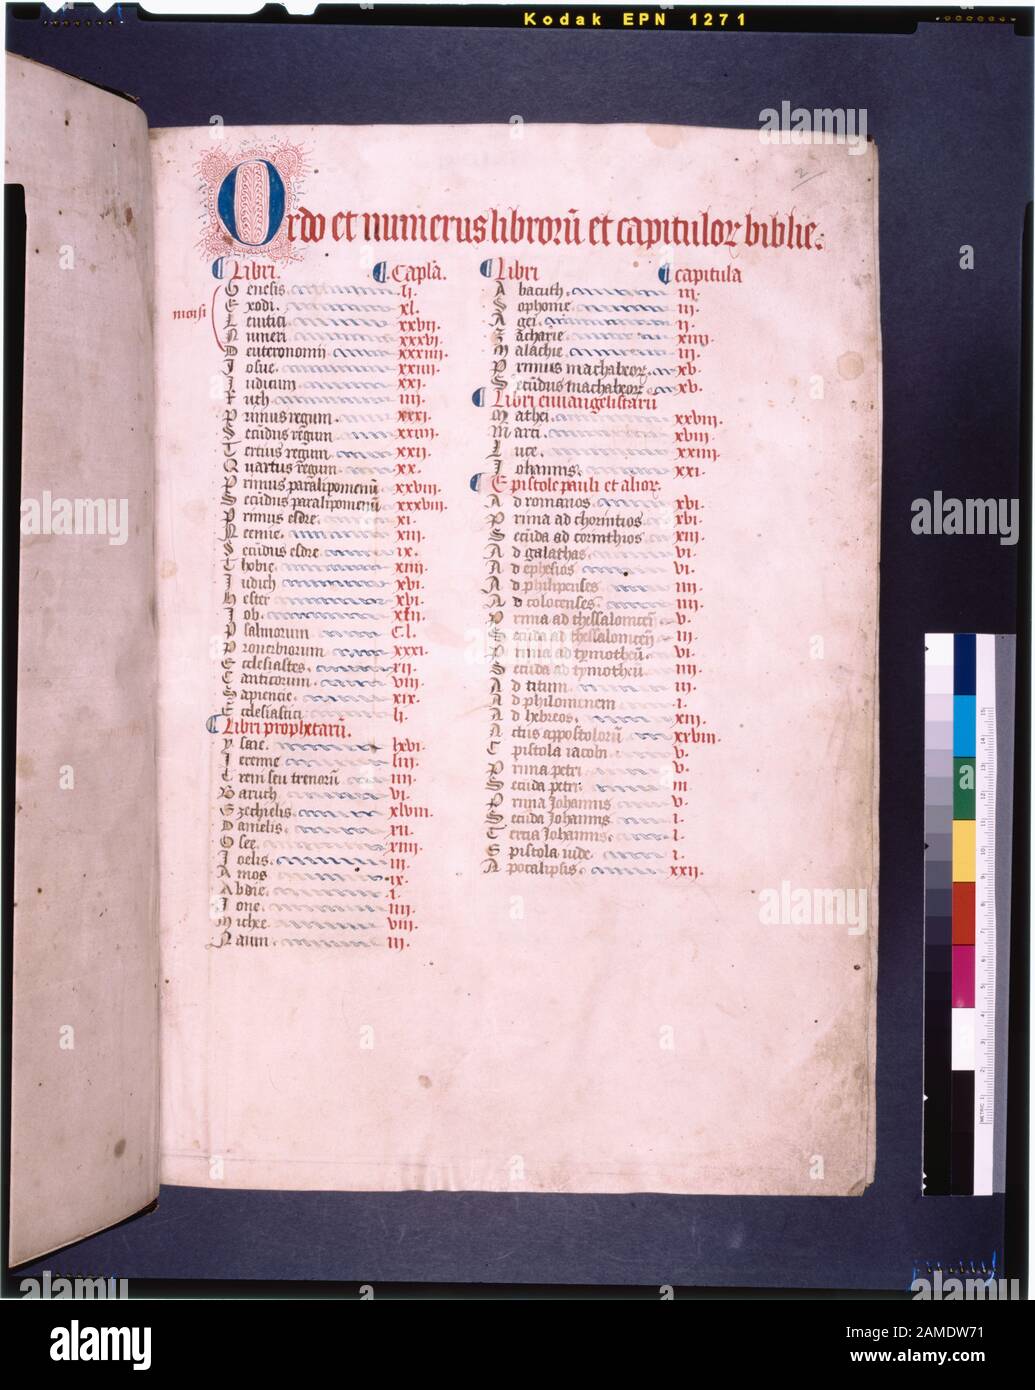 Kodak EPN 1271
2
Ordo et numerus librorū et capituloꝝ biblie.
Libri. Capla.
Genesis. l.
Exodi. xl.
Leuitici xxvii.
Numeri xxxvi.
Deuteronomii xxxiiii.
Iosue. xxiiii.
Iudicum xxi.
Ruth iiii.
Primus regum. xxxi.
Secūdus regum xxiiii.
Tertius regum. xxii.
Quartus regum xx.
Primus paralipomenū xxviii.
Secūdus paralipomenū xxxviii.
Primus esdre. xi.
Neemie. xiii.
Secūdus esdre ix.
Thobie xiiii.
Iudich xvi.
Hester xvi.
Iob. xlii.
Psalmorum C.l.
Prouerbiorum xxxi.
Ecclesiastes. xii.
Canticorum viii.
Sapiencie. xix.
Ecclesiastici li.
Libri prophetarū.
Ysaie. lxvi.
Ieremie liii.
Treni seu trenorū iiii.
Baruch vi.
Ezechielis. xlviii.
Danielis. xii.
Osee. xiiii.
Ioelis. iii.
Amos ix.
Abdie. i.
Ione. iiii.
Michee. viii.
Naum. iii.
Libri capitula
Abacuch. iii.
Sophonie iii.
Agei. ii.
Zacharie xiiii.
Malachie iii.
Primus machabeoꝝ. xv.
Secūdus machabeoꝝ xv.
Libri euuangelistarū
Mathei. xxviii.
Marci. xviii.
Luce. xxiiii.
Iohannis. xxi.
Epistole pauli et alioꝝ.
Ad romanos xvi.
Prima ad chorintios xvi.
Secūda ad corinthios xiii.
Ad galathas. vi.
Ad ephesios vi.
Ad philipenses iiii.
Ad colocenses. iiii.
Prima ad thessalonicēs v.
Secūda ad thessalonicēs iii.
Prima ad tymotheū. vi.
Secūda ad tymotheū. iiii.
Ad titum iii.
Ad philomenem i.
Ad hebreos. xiii.
Actus appostolorū xxviii.
Epistola iacobi v.
Prima petri v.
Secūda petri iii.
Prima Johannis v.
Secūda Johannis i.
Tertia Johannis. i.
Epistola iude. i.
Apocalipsis. xxii.
alamy
Image ID: 2AMDW71
www.alamy.com